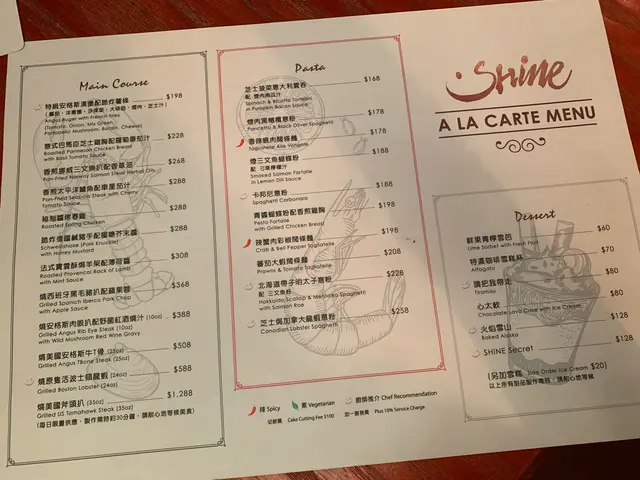 Main Course
特級安格斯漢堡配脆炸薯條 $198
Angus Buger with French Fries
(Tomato, Onion, Mix Green,
Portobello Mushroom, Bacon, Cheese)
意式巴馬臣芝士雞胸配羅勒蕃茄汁 $228
Roasted Parmesan Chicken Breast
with Basil Tomato Sauce
香煎挪威三文魚扒配香草油 $268
Pan-Fried Norway Salmon Steak Herbal Oils
香煎太平洋鱸魚配車厘茄汁 $288
Pan-Fried Seabass Steak with Cherry
Tomato Sauce
$288
Roasted Spring Chicken
脆炸德國鹹豬手配獨蘭芥末醬 $288
Schweinshaxe (Pork Knuckle)
with Honey Mustard
法式寶雲酥焗羊架配薄荷醬 $308
Roasted Provencal Rack of Lamb
with Mint Sauce
燒西班牙黑毛豬扒配蘋果蓉 $368
Grilled Spanich Iberico Pork Chop
with Apple Sauce
燒安格斯肉眼扒配野菌紅酒燒汁 (10oz) $388
Grilled Angus Rib Eye Steak (10oz)
with Wild Mushroom Red Wine Gravy
燒美國安格斯牛T骨 (25oz) $508
Grilled Angus TBone Steak (25oz)
燒原隻活波士頓龍蝦 (24oz) $588
Grilled Boston Lobster (24oz)
燒美國斧頭扒 (35oz) $1,288
Grilled US Tomahawk Steak (35oz)
(每日限量供應，製作需時約30分鐘，請耐心地等候美食)
Pasta
芝士菠菜意大利雲吞 $168
配 煙肉南瓜汁
Spinach & Ricotta Tortelloni
in Pumpkin Bacon Sauce
煙肉黑橄欖意粉 $178
Pancetta & Black Oliver Spaghetti
香辣蜆肉闊條麵 $178
Tagliatelle Alle Vongole
煙三文魚蝴蝶粉 $188
配 忌廉檸檬汁
Smoked Salmon Farfalle
in Lemon Dill Sauce
卡邦尼意粉 $188
Spaghetti Carbonara
青醬蝴蝶粉配香煎雞胸 $188
Pesto Farfalle
with Grilled Chicken Breast
辣蟹肉彩椒闊條麵 $198
Crab & Bell Pepper Tagliatelle
蕃茄大蝦闊條麵 $208
Prawns & Tomato Tagliatelle
北海道帶子明太子意粉 $228
配 三文魚籽
Hokkaido Scallop & Mentaiko Spaghetti
with Salmon Roe
芝士焗加拿大龍蝦意粉 $258
Canadian Lobster Spaghetti
辣 Spicy 素 Vegetarian 廚師推介 Chef Recommendation
切餅費 Cake Cutting Fee $100 加一服務費 Plus 10% Service Charge
Shine
A LA CARTE MENU
Dessert
鮮果青檸雪芭 $60
Lime Sorbet with Fresh Fruit
特濃咖啡雪糕杯 $70
Affogato
請把我帶走 $80
Tiramisu
心太軟 $80
Chocolate Lava Cake with Ice Cream
火焰雪山 $128
Baked Alaska
SHINE Secret $128
(另加雪糕 Side Order Ice Cream $20)
以上有甜品製作需時，請耐心地等候